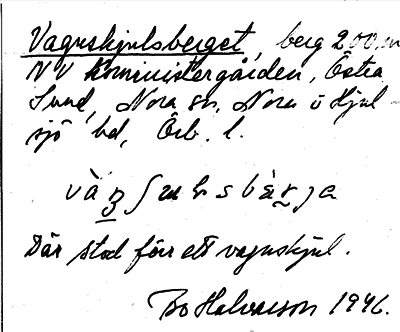 Vagnskjulsberget, berg 200 m
NV Komministergården, Östra
Sund, Nora sn, Nora o Hjul
sjö bd, Örb. l.
Där stod förr ett vagnskjul.
Bo Halvarson 1946.